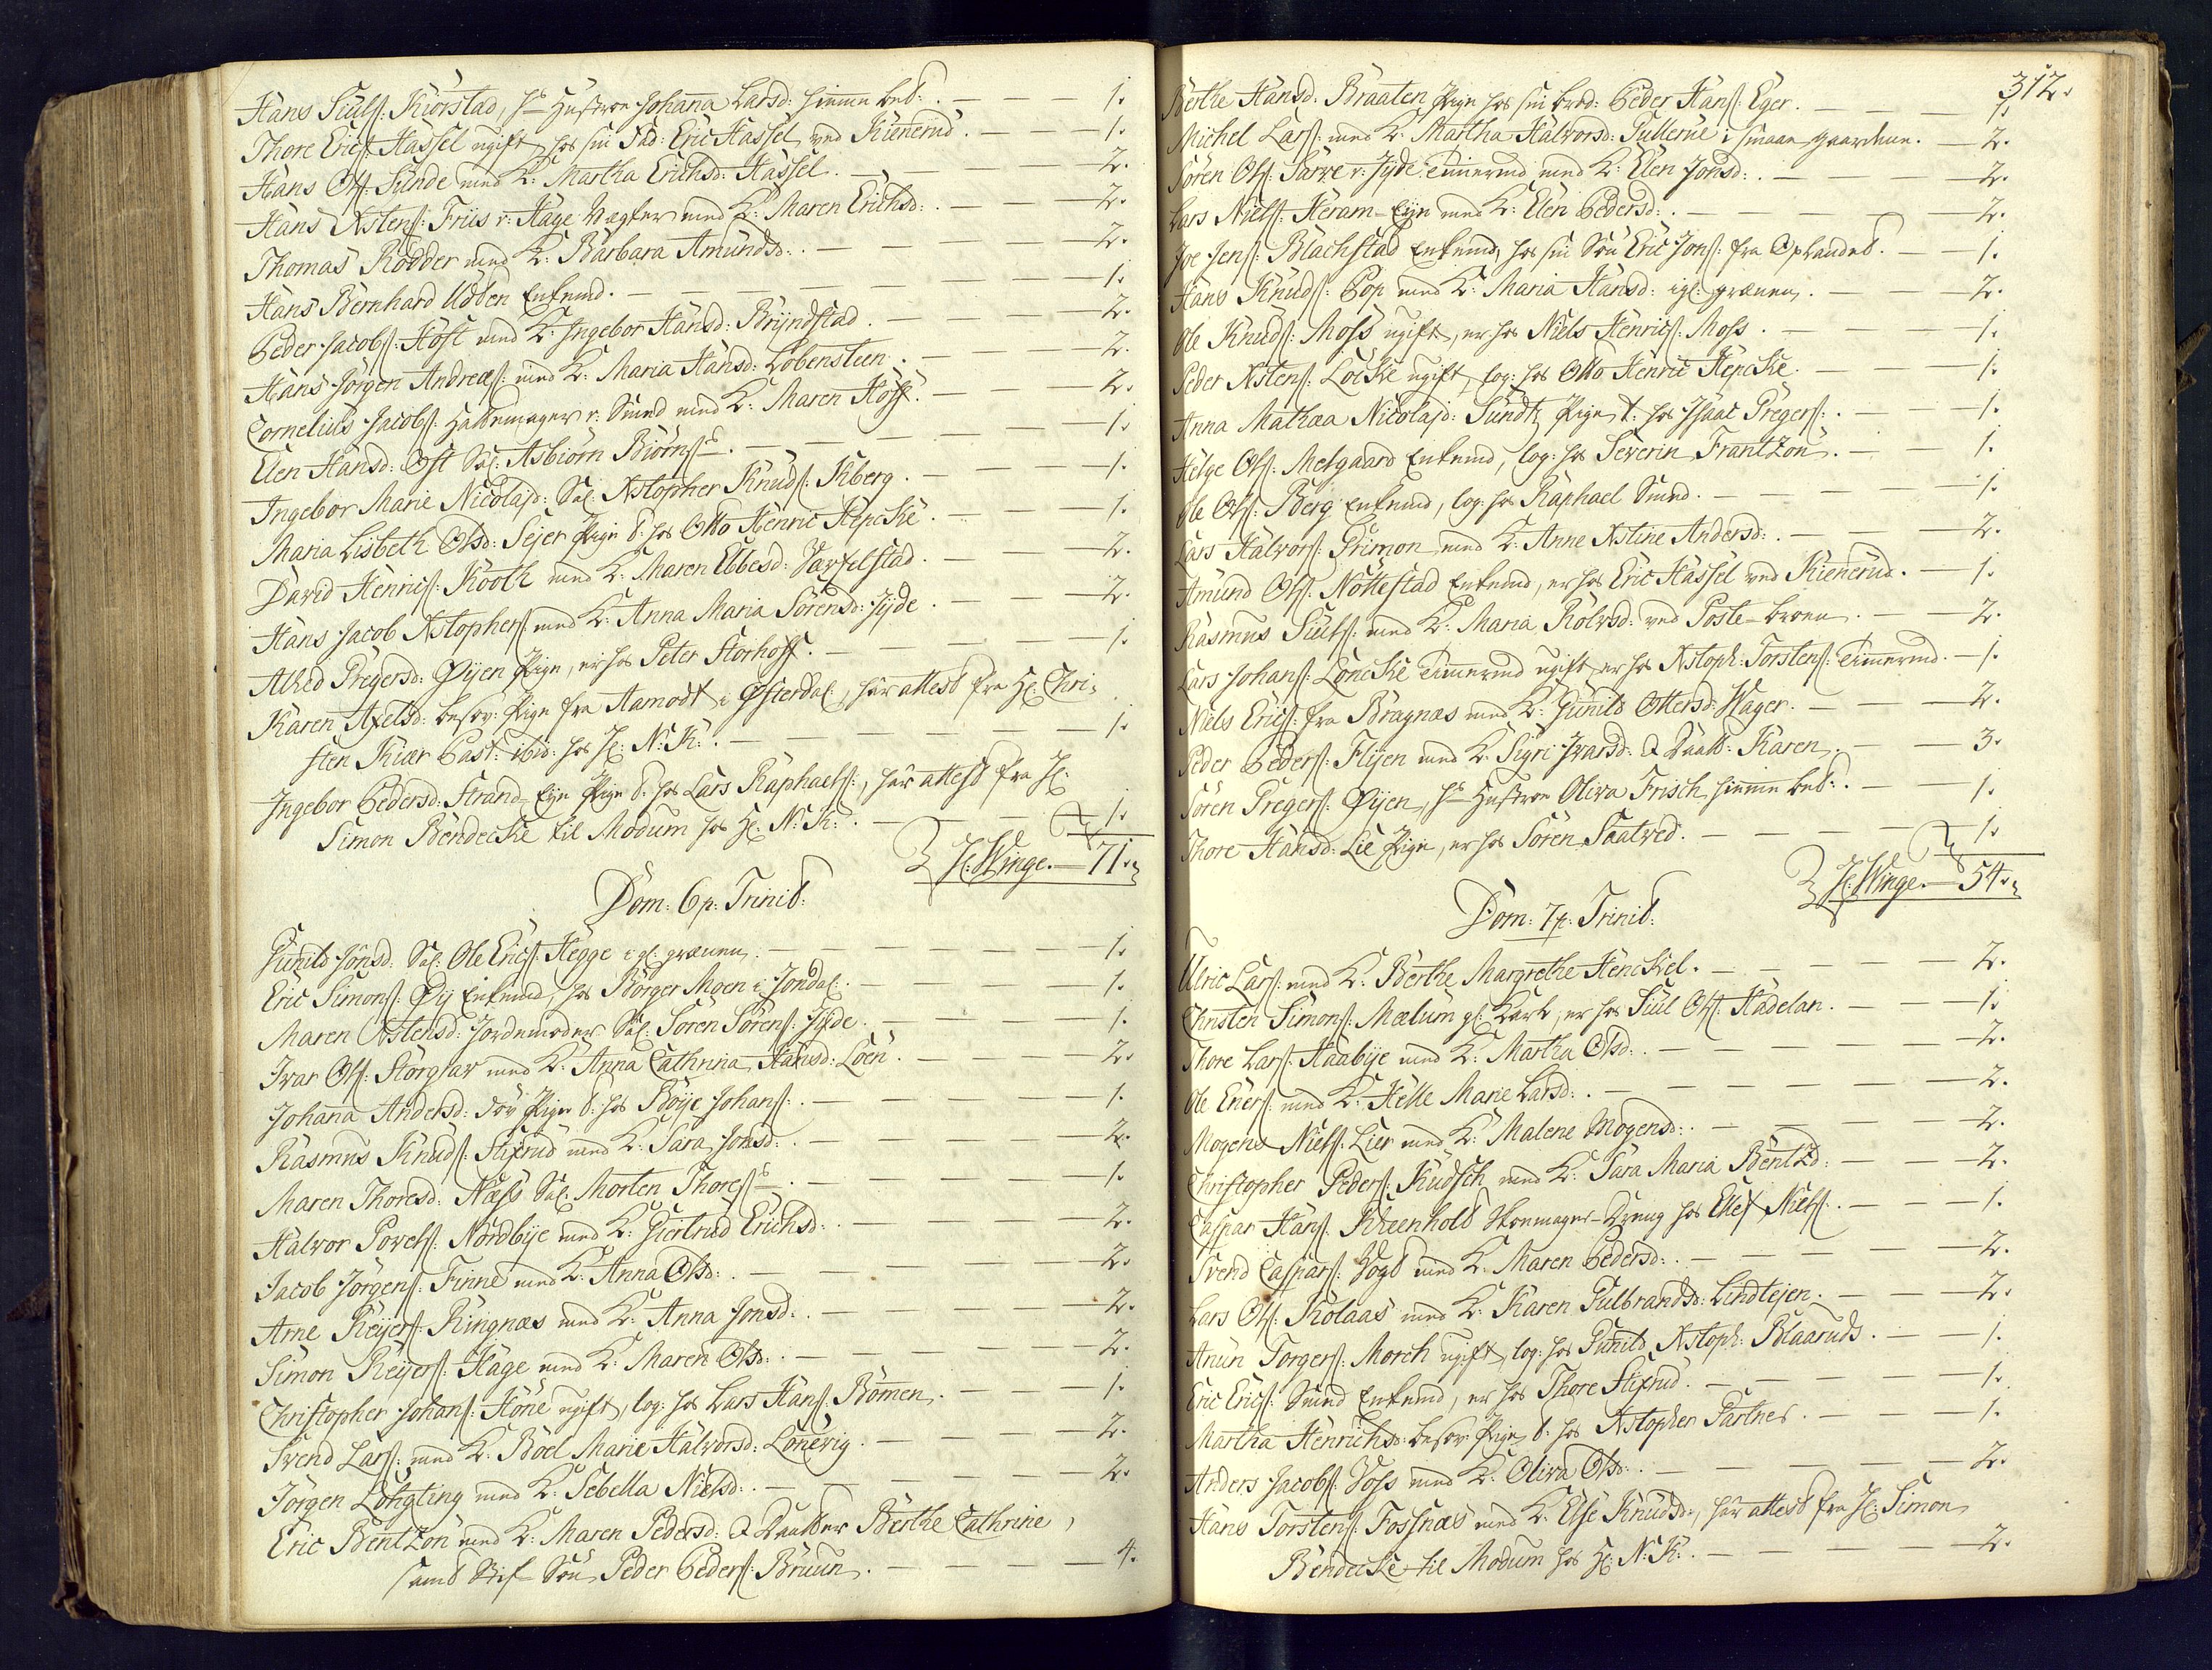 Hans Siulſ: Kiörstad, hs Hustroe Johana Larsd: hiemme bet: . — — — 1.
Thore Ericſ: Hassel ugift, hos sin Fad: Eric Hassel ved Kienerud. — — — 1.
Hans Olſ: Sunde med K: Martha Erichsd: Hassel. — — — 2.
Hans Xstenſ: Friis v: Hage Vægter med K: Maren Erichsd: . — — — 2.
Thomas Rödder med K: Barbara Amundsd: . — — — 2.
Hans Bernhard Udden Enkemd. — — — 1.
Peder Jacobſ: Höst med K: Ingebor Hansd: Bryndstad. — — — 2.
Hans Jörgen Andreæſ: med K: Maria Hansd: Löbensteen. — — — 2.
Cornelius Jacobſ: Hattemager v: Smed med K: Maren Höff. — — — 2.
Elen Hansd: Ost Sal: Asbiörn Biörnſ: . — — — 1.
Ingebor Marie Nicolajd: Sal: Xstopher Knudſ: Kberg. — — — 1.
Maria Lisbeth Olsd: Sejer Pige t: hos Otto Henric Hepcke. — — — 1.
David Henricſ: Kooth med K: Maren Ebbesd: Varfelstad. — — — 2.
Hans Jacob Xstopherſ: med K: Anna Maria Sörensd: Jyde. — — — 2.
Alhed Pregersd: Øyen Pige, er hos Peter Storhoff. — — — 1.
Karen Axelsd: besov: Pige fra Aamodt i Østerdal, har attest fra H: Chri-
sten Kiær Past: ibid: hos H: N: K: . — — — 1.
Ingebor Pedersd: Strand Eyn Pige t: hos Lars Raphaelſ: , har attest fra H:
Simon Bendecke til Modum hos H: N: K: . — — — 1.
H: Winge. — 71.
Dom: 6 p: Trinit:
Gunild Jönsd: Sal: Ole Ericſ: Hegge i gl: grænen. — — — 1.
Eric Simonſ: Øy Enkemd, hos Börger Moen i Jondal. — — — 1.
Maren Xstensd: Jordemoder Sal: Sören Sörenſ: Jyde. — — — 1.
Ivar Olſ: Störgsar med K: Anna Cathrina Hansd: Loen. — — — 2.
Johana Andersd: döv Pige t: hos Böye Johanſ: . — — — 1.
Rasmus Knudſ: Stixrud med K: Sara Jonsd: . — — — 2.
Maren Thoresd: Næss Sal: Morten Thoreſ: . — — — 1.
Halvor Povelſ: Nordbye med K: Giertrud Erichsd: . — — — 2.
Jacob Jörgenſ: Finne med K: Anna Olsd: . — — — 2.
Arne Reyerſ: Ringnæs med K: Anna Jonsd: . — — — 2.
Simon Reyerſ: Hage med K: Maren Olsd: . — — — 2.
Christopher Johanſ: Höne ugift, log: hos Lars Hanſ: Bömen. — — — 1.
Svend Larſ: med K: Boel Marie Halvorsd: Lönevig. — — — 2.
Jörgen Löngting med K: Sebella Nielsd: . — — — 2.
Eric Bentzon med K: Maren Pedersd: & Daatter Berthe Cathrine,
samt Stif Sön Peder Pederſ: Bruun. — — — 4.
312.
Berthe Hansd: Braaten Pige hos sin brod: Peder Hanſ: Eger. — — — 1.
Michel Larſ: med K: Martha Halvorsd: Gullerue i smaae gaardene. — 2.
Sören Olſ: Sarve v: Jyde Timermd med K: Elen Jonsd: . — — — 2.
Lars Nielſ: Heram-Eyn med K: Elen Pedersd: . — — — 2.
Joe Jenſ: Blachstad Enkemd, hos sin Sön Eric Jonſ: fra Oplandet. — — 1.
Hans Knudſ: Pop med K: Maria Hansd: i gl: grænen. — — — 2.
Ole Knudſ: Moss ugift, er hos Niels Henricſ: Moss. — — — 1.
Peder Xstenſ: Löcke ugift, log: hos Otto Henric Hepcke. — — — 1.
Anna Mathæa Nicolajd: Sundt Pige t: hos Isaac Pregerſ: . — — — 1.
Helge Olſ: Melgaard Enkemd, log: hos Severin Frantzon. — — — 1.
Ole Olſ: Berg Enkemd, log: hos Raphael Smed. — — — 1.
Lars Halvorſ: Primon med K: Anne Xstine Andersd: . — — — 2.
Amund Olſ: Nöttestad Enkemd, er hos Eric Hassel ved Kienerud. — 1.
Rasmus Siulſ: med K: Maria Rolvsd: ved Poste-broen. — — — 2.
Lars Johanſ: Loncke Timermd ugift, er hos Xstoph: Torstenſ: Timermd. — 1.
Niels Ericſ: fra Bragnæs med K: Gunild Ottersd: Wager. — — — 2.
Peder Pederſ: Flyen med K: Sigri Ivarsd: & Daatt: Karen. — — — 3.
Sören Pregerſ: Øyen, hs Hustroe Oliva Frisch hiemme bet: . — — — 1.
Thore Hansd: Lie Pige, er hos Sören Saatved. — — — 1.
H: Winge. — 54.
Dom: 7 p: Trinit:
Ulric Larſ: med K: Berthe Margrethe Henckel. — — — 2.
Christen Simonſ: Mælum gl: Karl, er hos Siul Olſ: Hadelan. — — — 1.
Thore Larſ: Haabye med K: Martha Olsd: . — — — 2.
Ole Enerſ: med K: Helle Marie Larsd: . — — — 2.
Mogens Nielſ: Lier med K: Malene Mogensd: . — — — 2.
Christopher Pederſ: Kudsch med K: Sara Maria Bentzd: — — — 2.
Caspar Hanſ: Rheenholt Skomager-Dreng hos Ellef Nielſ: . — — — 1.
Svend Casparſ: Vogt med K: Maren Pedersd: . — — — 2.
Lars Olſ: Kolaas med K: Karen Gulbrandsd: Lindtejen. — — — 2.
Anun Torgerſ: Morch ugift, log: hos Gunild Xstoph: Blaaruds. — — — 1.
Eric Ericſ: Smed Enkemd, er hos Thore Stixrud. — — — 1.
Martha Henrichsd: besov: Pige t: hos Xstopher Gartner. — — — 1.
Anders Jacobſ: Voss med K: Oliva Olsd: . — — — 2.
Hans Torstenſ: Fossnæs med K: Else Knudsd:, har attest fra H: Simon
Bendecke til Modum hos H: N: K: . — — — 2.